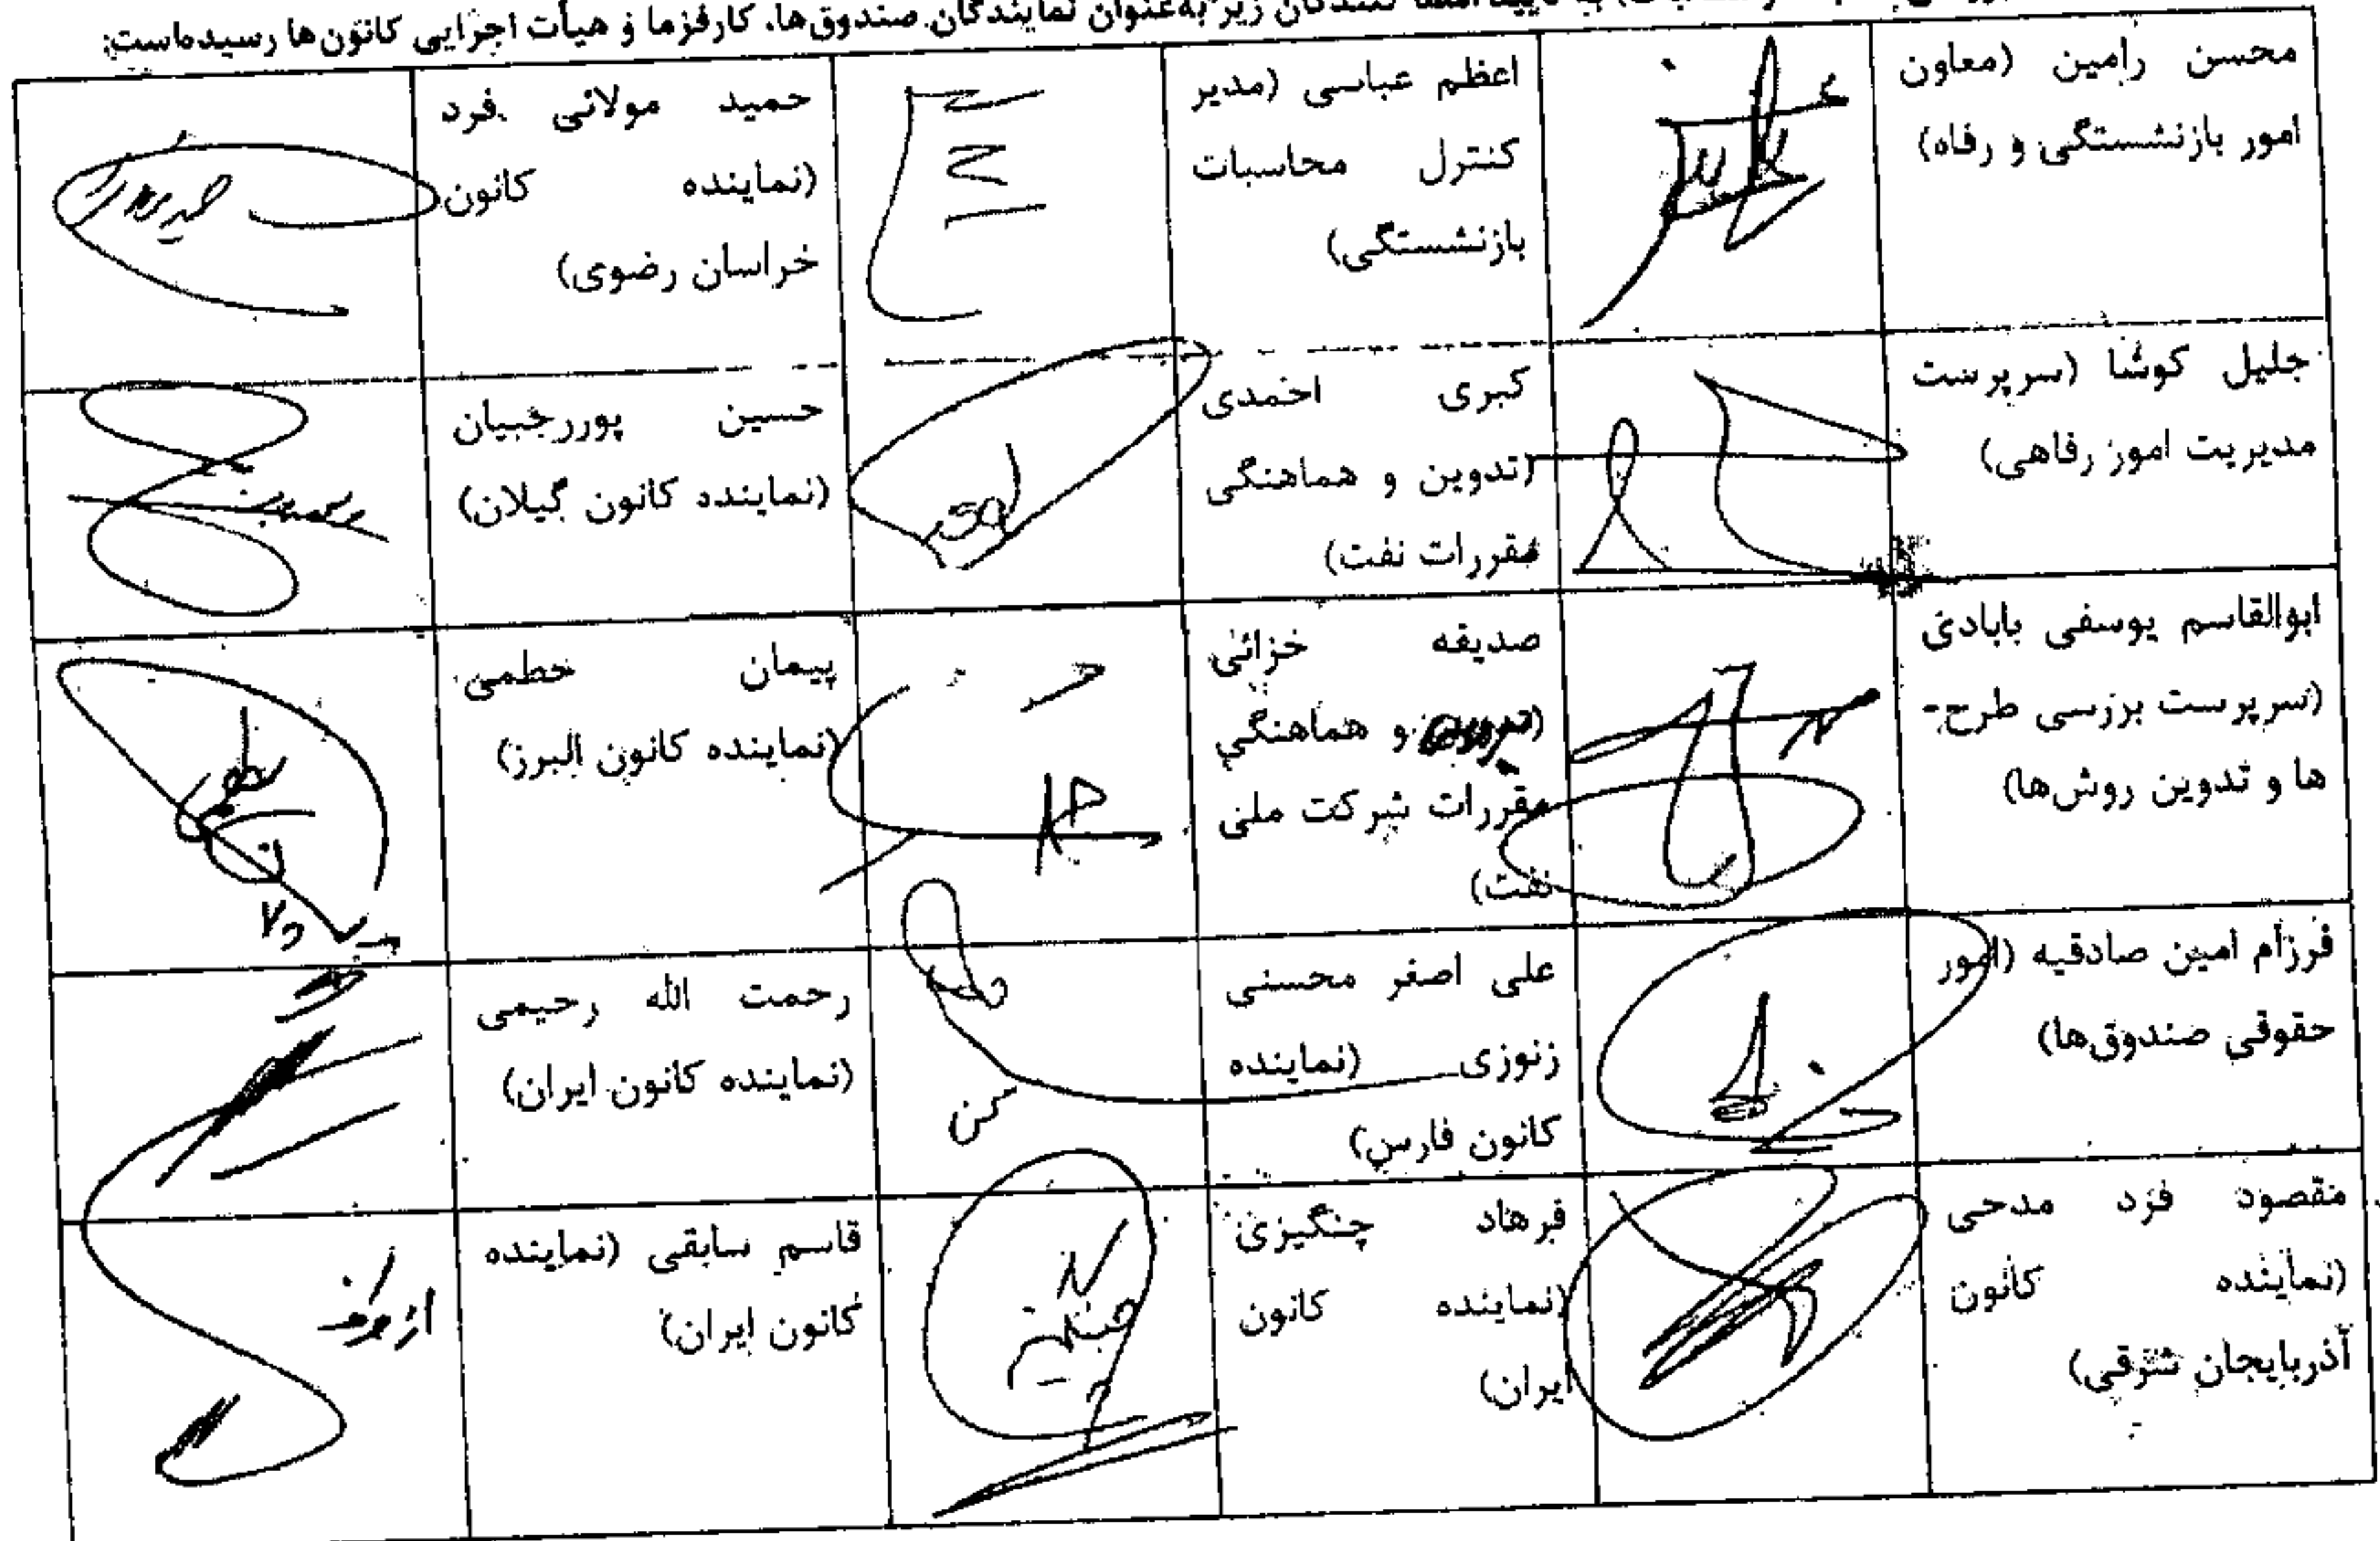 زیر به‌عنوان نمایندگان صندوق‌ها، کارفرما و هیأت اجرایی کانون‌ها رسیده‌است:
محسن رامین (معاون
امور بازنشستگی و رفاه)
اعظم عباسی (مدیر
کنترل محاسبات
بازنشستگی)
حمید مولائی فرد
(نماینده کانون
خراسان رضوی)
جلیل کوشا (سرپرست
مدیریت امور رفاهی)
کبری احمدی
(تدوین و هماهنگی
مقررات نفت)
حسین پوررجبیان
(نماینده کانون گیلان)
ابوالقاسم یوسفی بابادی
(سرپرست بررسی طرح-
ها و تدوین روش‌ها)
صدیقه خزائی
(تدوین و هماهنگی
مقررات شرکت ملی
نفت)
پیمان خطمی
(نماینده کانون البرز)
فرزام امین صادقیه (امور
حقوقی صندوق‌ها)
علی اصغر محسنی
زنوزی (نماینده
کانون فارس)
رحمت الله رحیمی
(نماینده کانون ایران)
مقصود فرد مدحی
(نماینده کانون
آذربایجان شرقی)
فرهاد چنگیزی
(نماینده کانون
ایران)
قاسم سابقی (نماینده
کانون ایران)